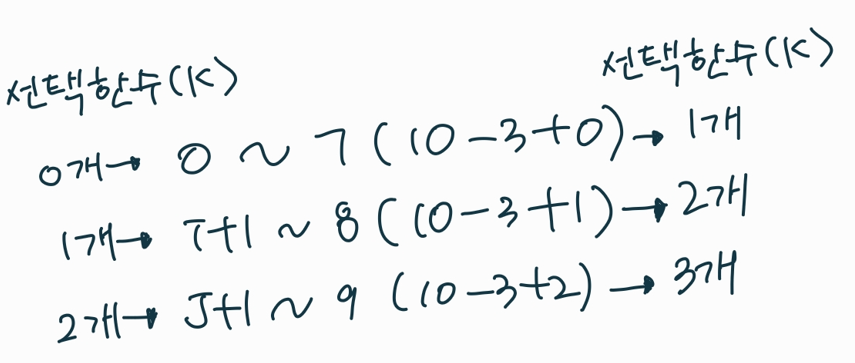 선택한수(K) 선택한수(K)
0개→ 0 ~ 7 (10-3+0)→ 1개
1개→ i+1 ~ 8 (10-3+1)→ 2개
2개→ J+1 ~ 9 (10-3+2)→ 3개